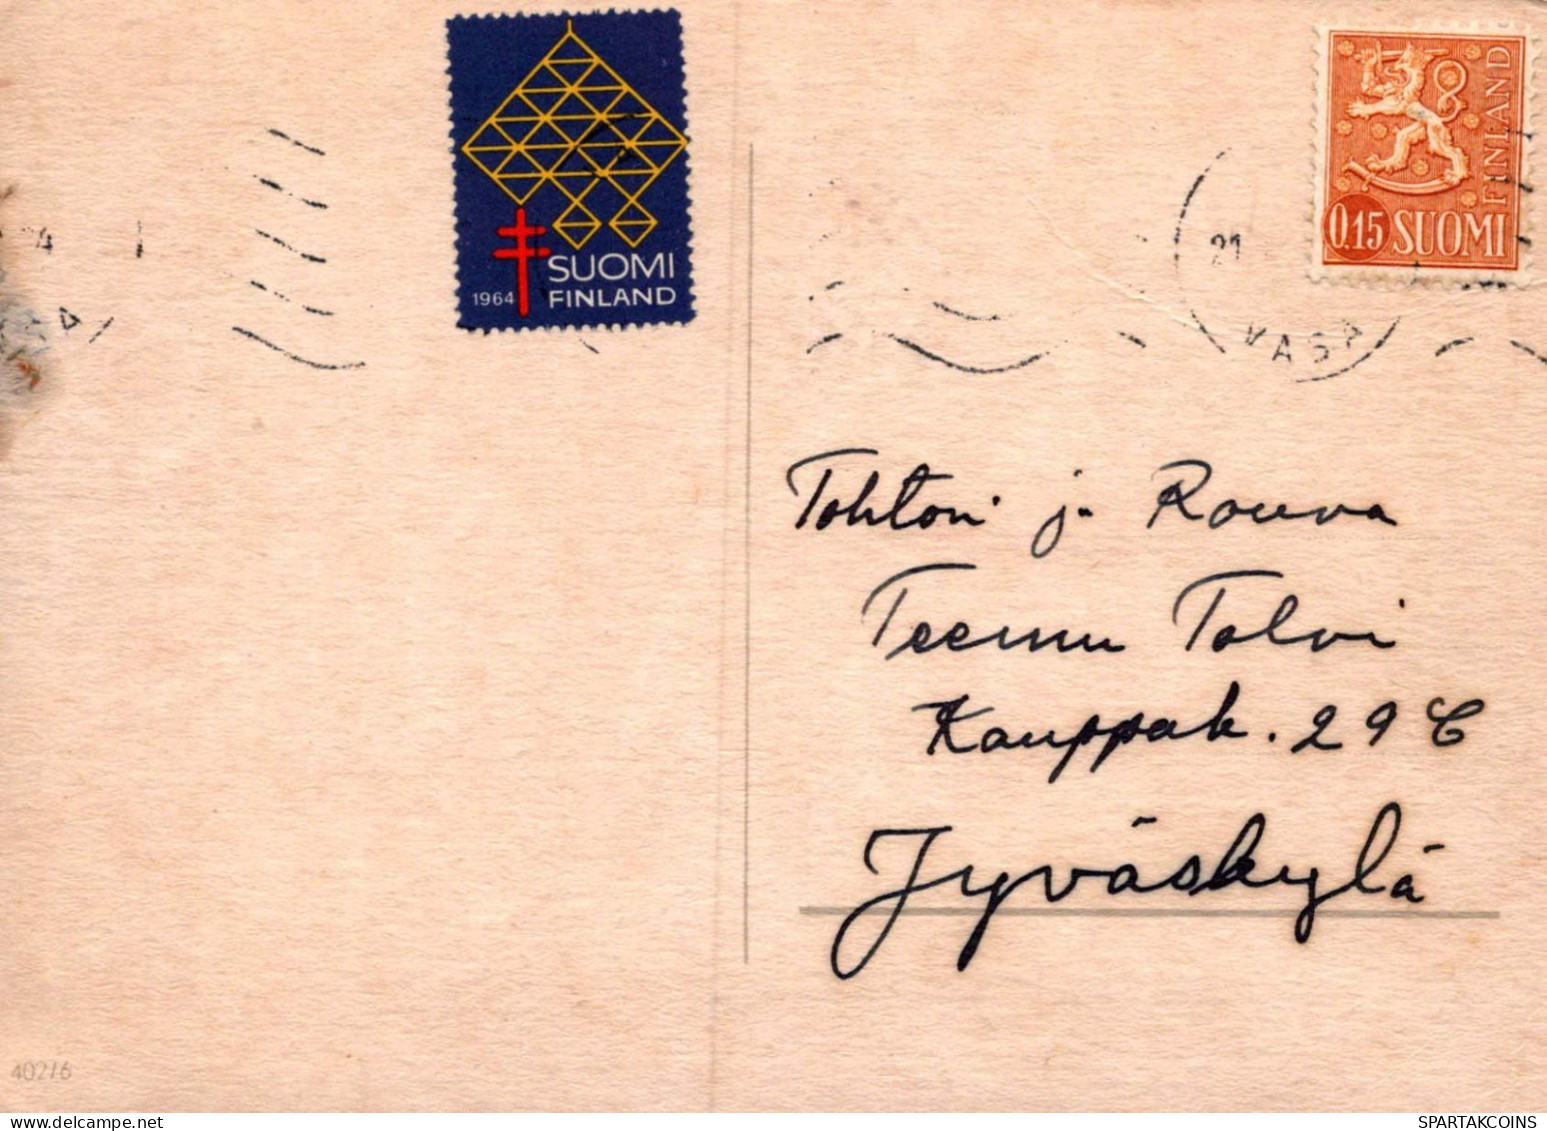 SUOMI
1964 FINLAND
FINLAND
0.15 SUOMI
21
Tohtori ja Rouva
Teemu Tolvi
Kauppak. 29 C
Jyväskylä
40216
SPARTAKCOINS